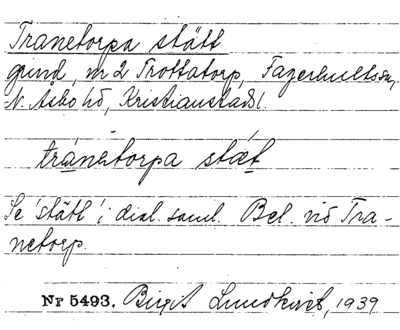 Tranetorpa stätt
grind, nr 2 Trottatorp, Fagerhults sn,
N. Åsbo hd, Kristianstads l.
tránetorpa stæt
Se 'stätt' i dial. saml. Bel. vid Tra-
netorp.
Nr 5493. Birgit Lundkvist, 1939